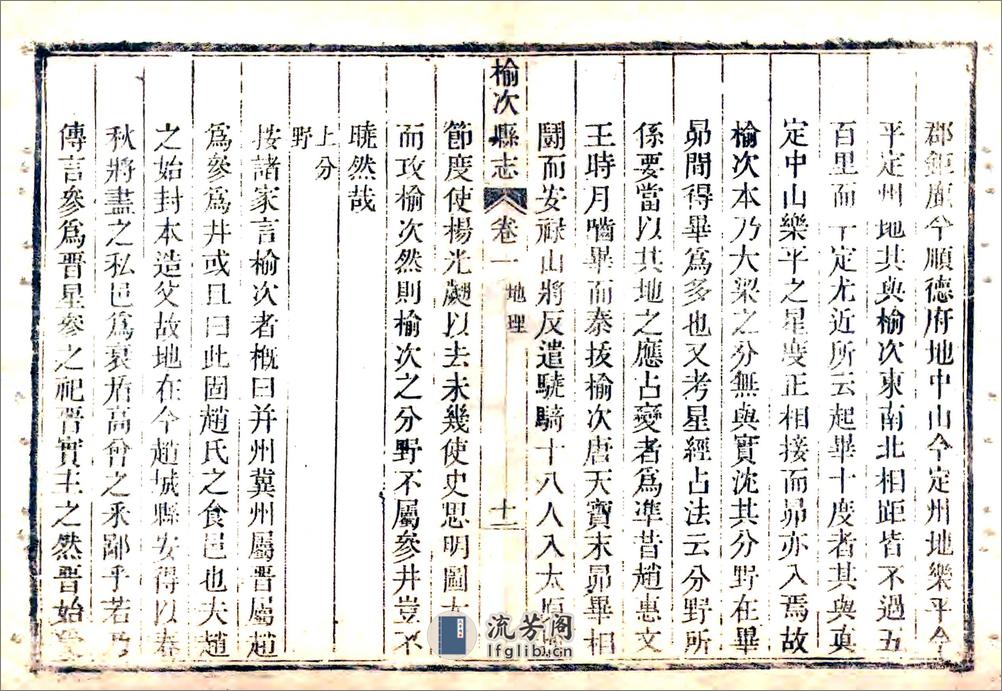 郡鉅鹿今順德府地中山今定州地樂平今
平定州地其與榆次東南北相距皆不過五
百里而丁定尤近所云起畢十度者其與真
定中山樂平之星度正相接而昴亦入焉故
榆次本乃大梁之分無與實沈其分野在畢
昴間得畢為多也又考星經占法云分野所
係要當以其地之應占變者為凖昔趙惠文
王時月嚙畢而秦拔榆次唐天寶末昴畢相
鬬而安祿山將反遣驍騎十八人入太原
榆次縣志
卷一
地理
十一
節度使楊光翽以去未幾使史思明圖太
而攻榆次然則榆次之分野不屬參井豈不
曉然哉
上分
野
按諸家言榆次者概曰并州冀州屬晉屬趙
為參為井或且曰此固趙氏之食邑也夫趙
之始封本造父故地在今趙城縣安得以春
秋將盡之私邑為衰盾高會之釆鄙乎若乃
傳言參為晉星參之祀晉實主之然晉始
流芳阁
lfglib.cn